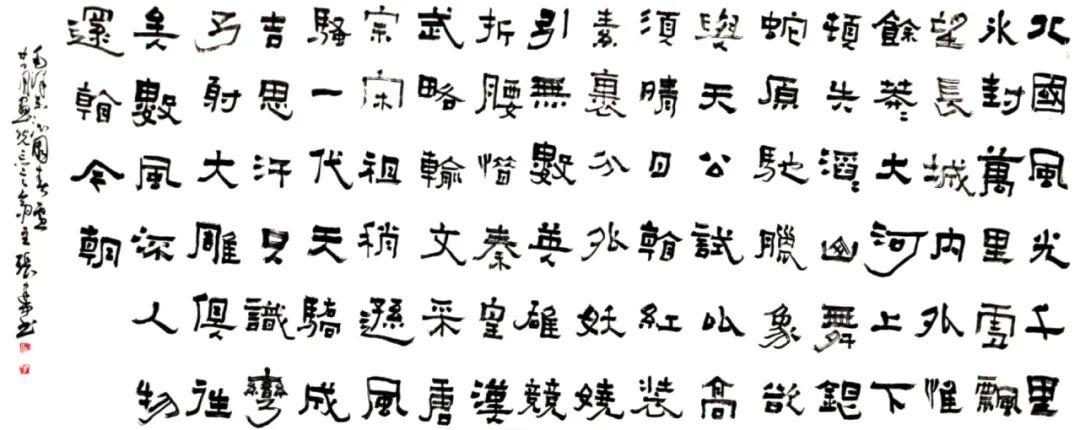 北國風光千里
氷封萬里雪飄
望長城内外惟
餘莽〻大河上下
頓失滔〻山舞銀
蛇原馳臘象欲
與天公試比高
須晴日看紅裝
素裹分外妖嬈
引無數英雄競
折腰惜秦皇漢
武略輸文采唐
宗宋祖稍遜風
騷一代天驕成
吉思汗只識彎
弓射大雕俱往
矣數風流人物
還看今朝
毛澤東沁園春雪
張書